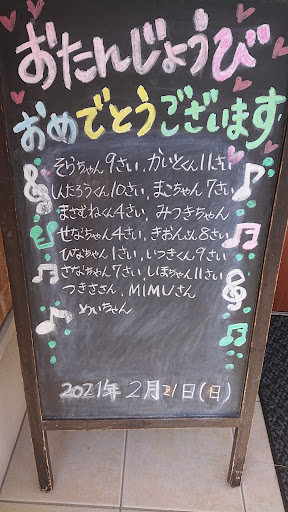 おたんじょうび
おめでとうございます
そらちゃん9さい、かいとくん11さい
しんたろうくん10さい、まこちゃん7さい
まさむねくん4さい、みつきちゃん
せなちゃん4さい、きおんさん8さい
ひなちゃん1さい、いつきくん9さい
さなちゃん7さい、しほちゃん11さい
つきささん、MIMUさん
めいちゃん
2021年 2月21日(日)